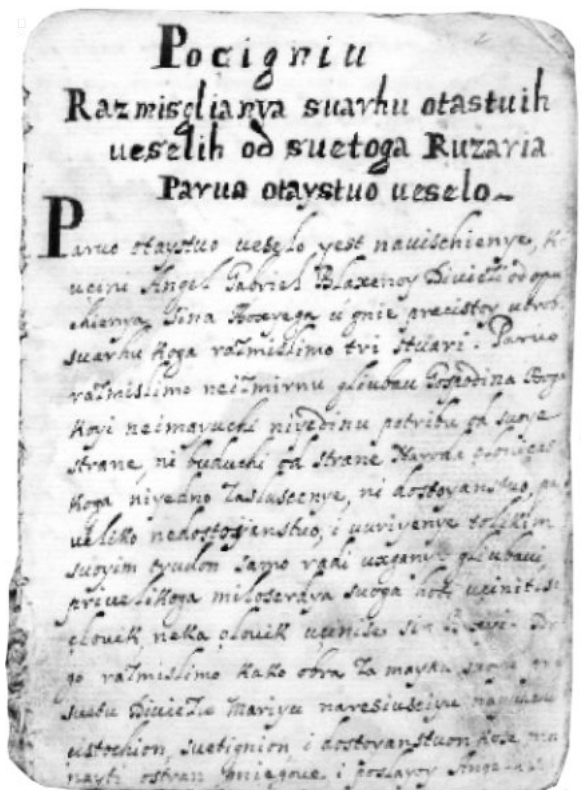 Pocigniu
Razmisglianya suarhu otastuih
ueselih od suetoga Ruzaria
Parua otaystuo ueselo~
Paruo otaystuo ueselo yest nauischienye,
ucini Angel Gabriel Blaxenoy Diuici od
chienya Sina Boxyega ù gnie precistoy utrob
suarhu koga razmislimo tri stuari. Paruo
razmislimo neizmirnu gliubau Gospodina Boga
koyi neimayuchi niyednu potribu od suoye
strane, ni buduchi od strane Naroda
koga niyedno zasluscenye, ni dostoyanstuo,
ueliko nedostoyanstuo, i uuriyenye tolikim
suoyim trudon samo radi uxgane gliubaui
priuelikoga miloserdya suoga hoti ucinitise
clouik, neka clouik ucinise sin
go razmislimo kako obra za mayku
suetu Diuicu Mariyu naresiusciyu
cistochion, suetignion i dostoyanstuon
nayti ostran gniegoue i poslavoy